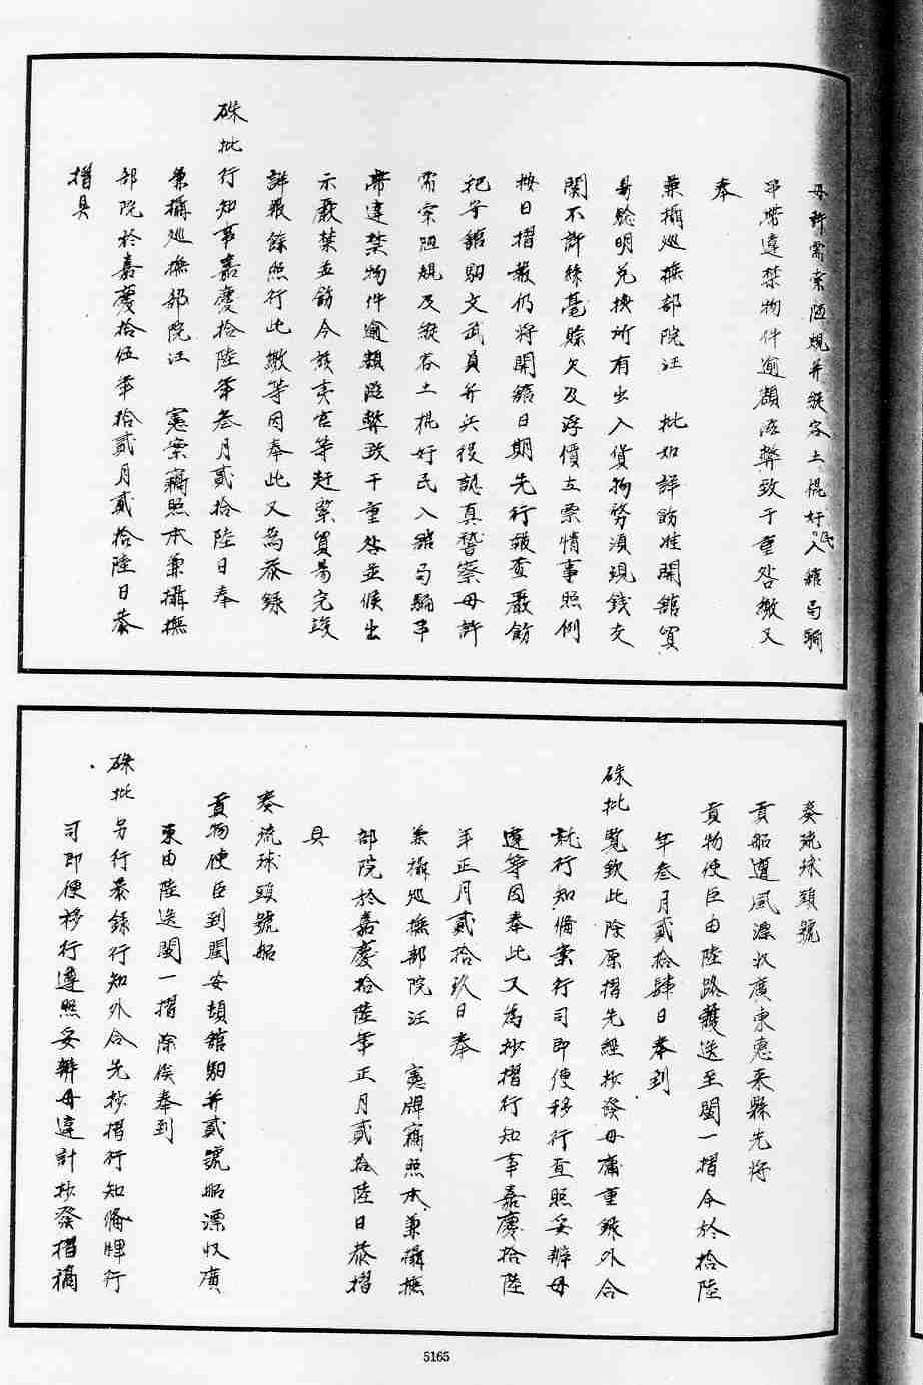 毋許需索陋規并縱容土棍奸民入館局騙
吊帶違禁物件逾額滋弊致干重咎繳又
奉
兼攝巡撫部院汪　批如詳飭准開館貿
易驗明兌換所有出入貨物務須現錢交
關不許絲毫賒欠及浮價立索情事照例
按日摺報仍將開館日期先行報查嚴飭
把守館馹文武員弁兵役認真稽察毋許
需索陋規及縱容土棍奸民入館局騙弔
帶違禁物件逾額滋弊致干重咎並候出
示嚴禁並飭令該夷官等赶緊貿易完竣
詳報餘照行此繳等因奉此又為恭錄
硃批行知事嘉慶拾陸年叁月貳拾陸日奉
兼攝巡撫部院汪　憲案竊照本兼攝撫
部院於嘉慶拾伍年拾貳月貳拾陸日恭
摺具
奏琉球頭號
貢船遭風漂收廣東惠來縣先將
貢物使臣由陸路護送至閩一摺今於拾陸
年叁月貳拾肆日奉到
硃批覽欽此除原摺先經抄發毋庸重錄外合
就行知俻案行司即便移行查照妥辦毋
違等因奉此又為抄摺行知事嘉慶拾陸
年正月貳拾玖日奉
兼攝巡撫部院汪　憲牌竊照本兼攝撫
部院於嘉慶拾陸年正月貳拾陸日恭摺
具
奏琉球頭號船
貢物使臣到閩安頓館馹并貳號船漂收廣
東由陸送閩一摺除俟奉到
硃批另行恭錄行知外合先抄摺行知俻牌行
司即便移行遵照妥辦毋違計抄發摺稿
5165